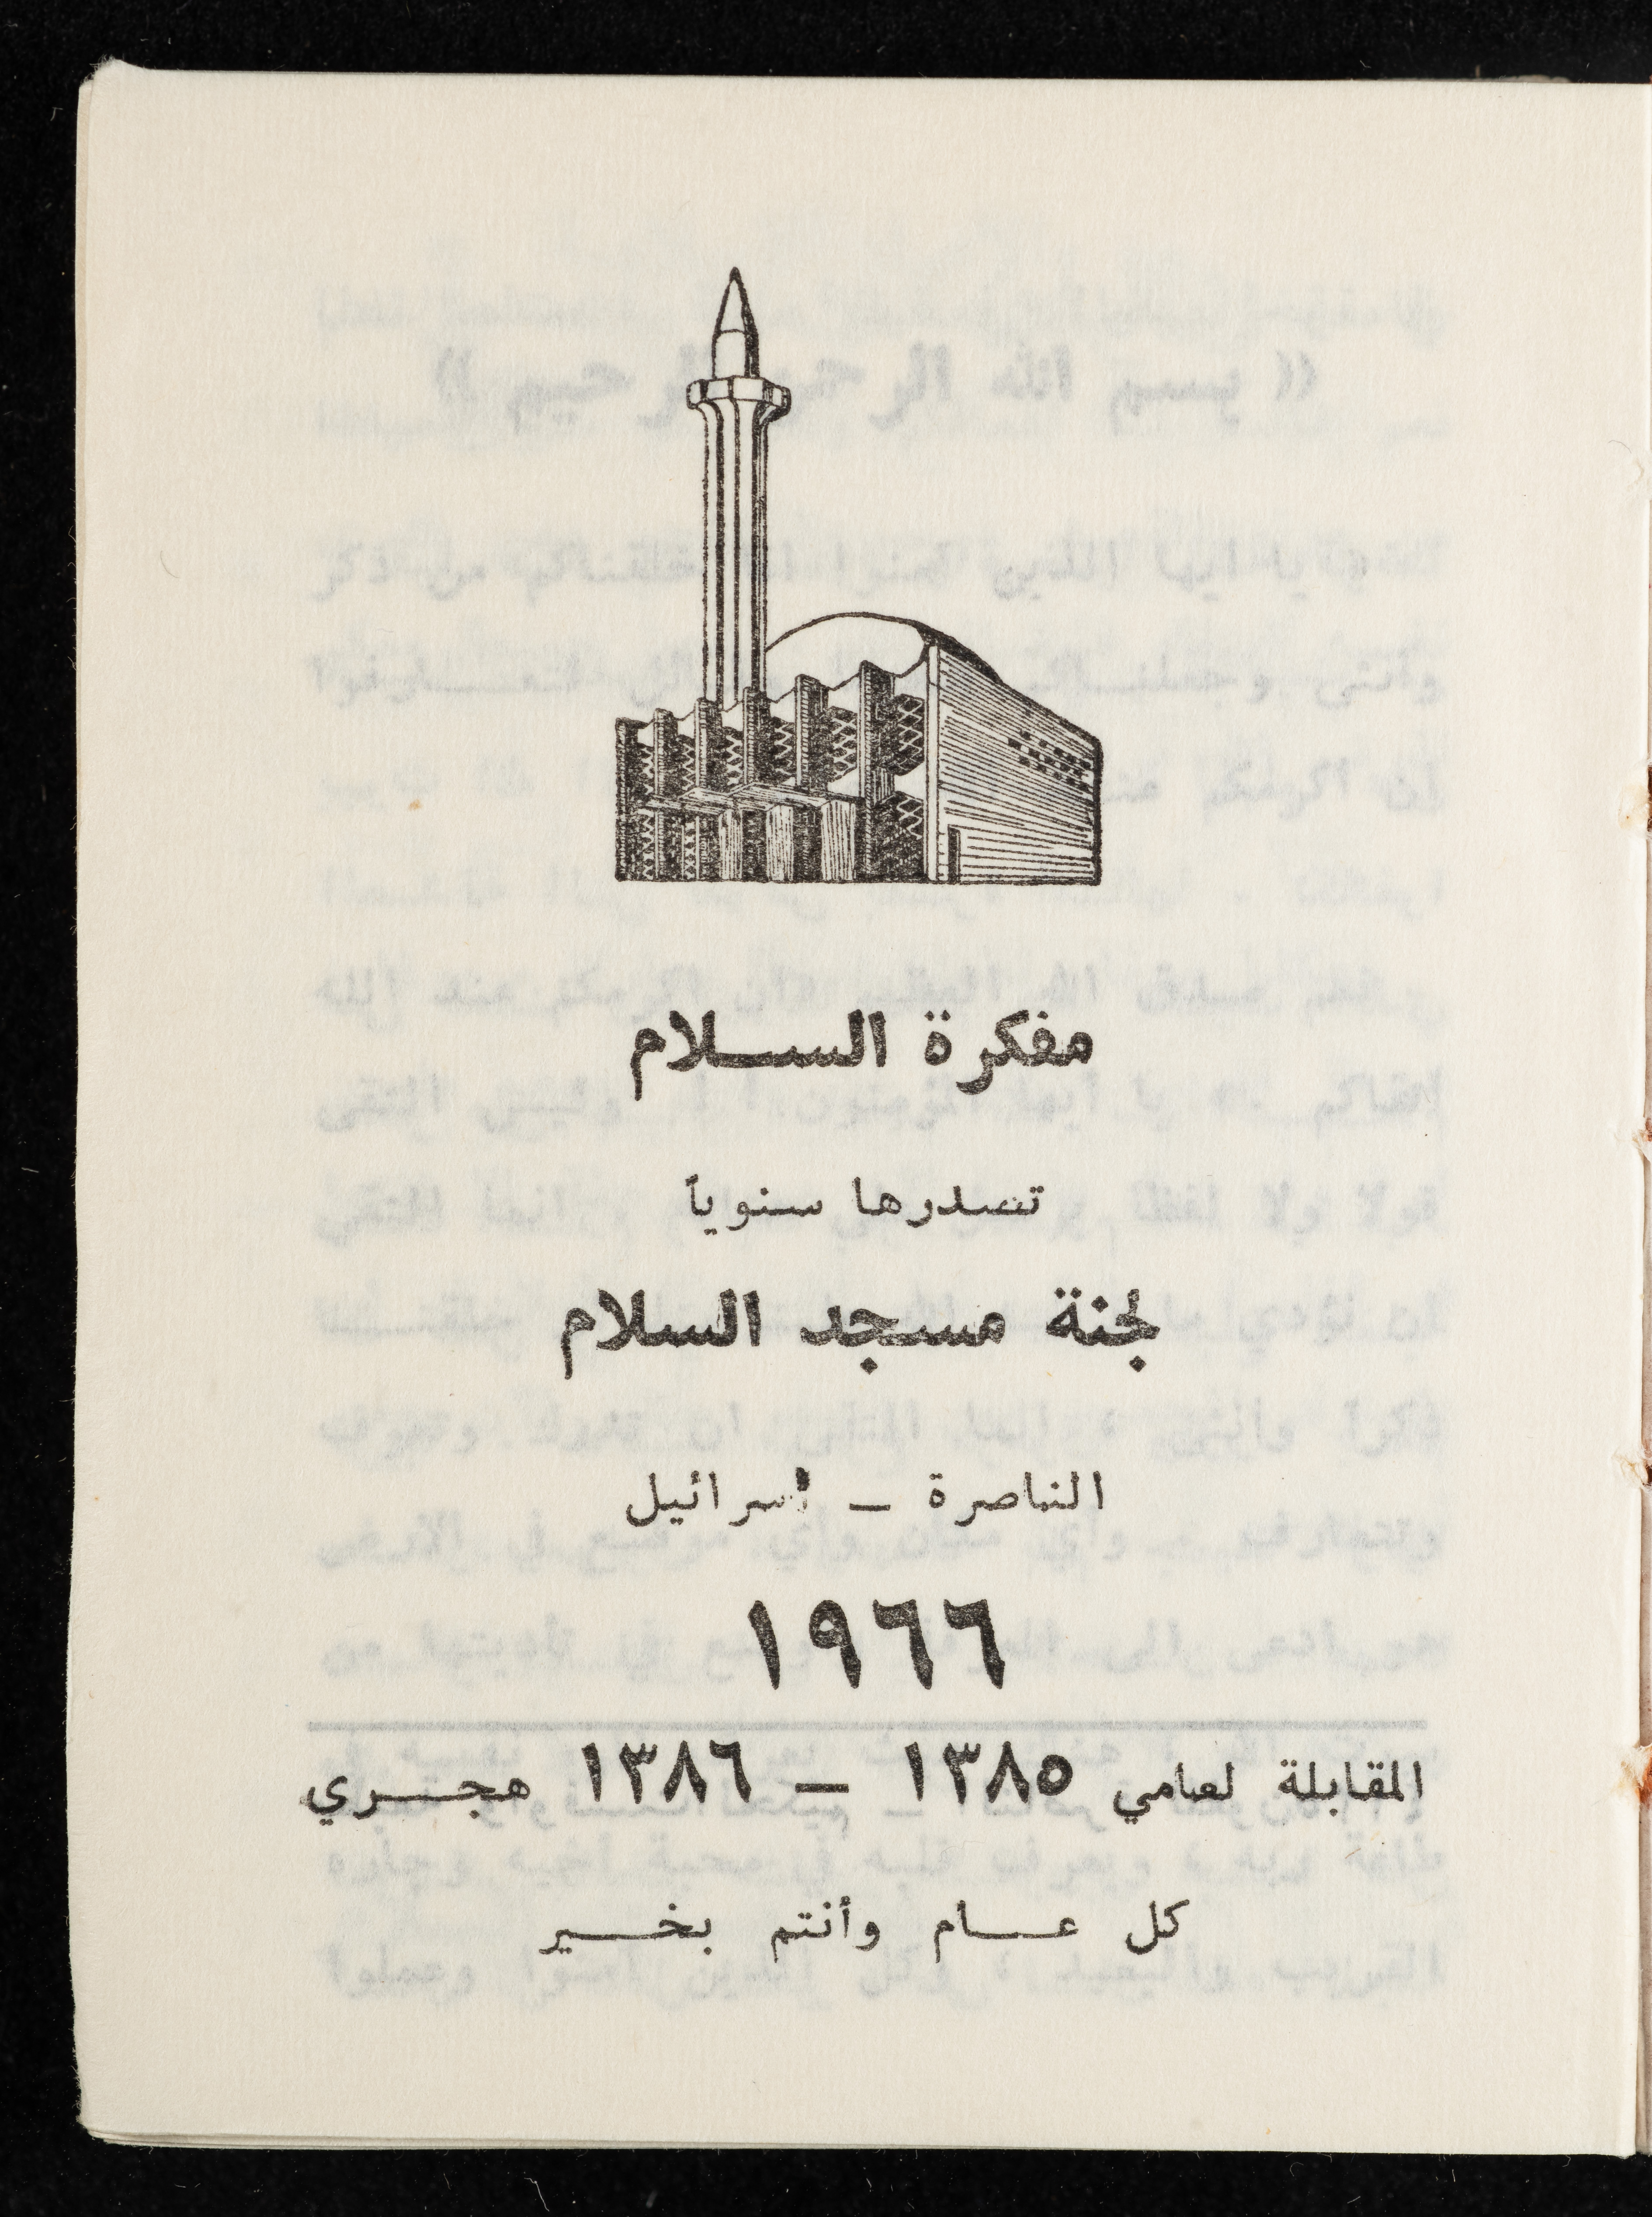 مفكرة السلام
تصدرها سنوياً
لجنة مسجد السلام
الناصرة – اسرائيل
١٩٦٦
المقابلة لعامي ١٣٨٥ – ١٣٨٦ هجري
كل عام وأنتم بخير